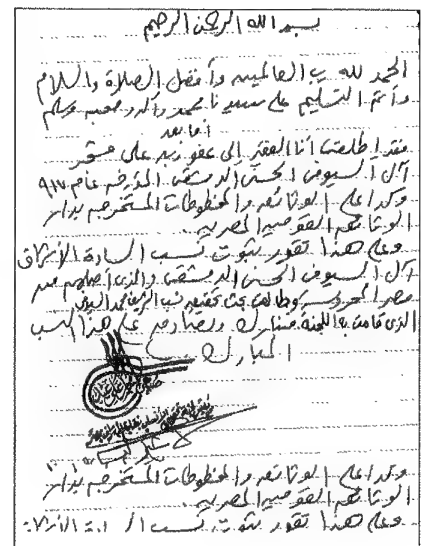 بسم الله الرحمن الرحيم
الحمد لله رب العالمين وأفضل الصلاة والسلام
وأتم التسليم على سيدنا محمد وآله وصحبه وسلم
أما بعد
فقد اطلعت أنا الفقير إلى عفو ربه على مشجر
آل السيوفي الحسني الدمشقي المؤرخ عام ٩١٧
وكذا على الوثائق والمخطوطات المستخرجه بدار
الوثائق القوميه المصريه
وعلى هذا تقرر بثبوت نسب السادة الأشراف
آل السيوفي الحسني الدمشقي والذي أصلهم من
مصر المحروسه وطالعت بحث تحقيق نسب الشريف محمد السيوفي
الذي قامت به اللجنة فنبارك ونصادق على هذا النسب
المبارك
وكذا على الوثائق والمخطوطات المستخرجه بدار
الوثائق القوميه المصريه
وعلى هذا تقرر بثبوت نسب